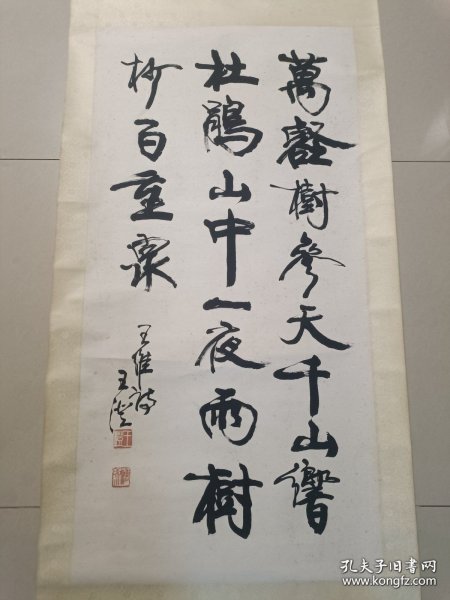 萬壑樹參天千山響
杜鵑山中一夜雨樹
杪百重泉
王維詩
王澄
孔夫子旧书网
www.kongfz.com